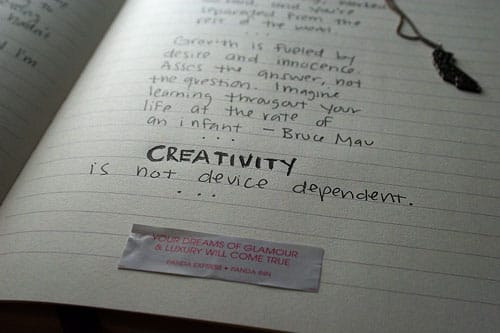 separated from the
rest of the
...
Growth is fueled by
desire and innocence.
Asses the answer, not
the question. Imagine
learning througout your
life at the rate of
an infant – Bruce Mau
...
CREATIVITY
is not device dependent.
...
YOUR DREAMS OF GLAMOUR
& LUXURY WILL COME TRUE
PANDA EXPRESS • PANDA INN